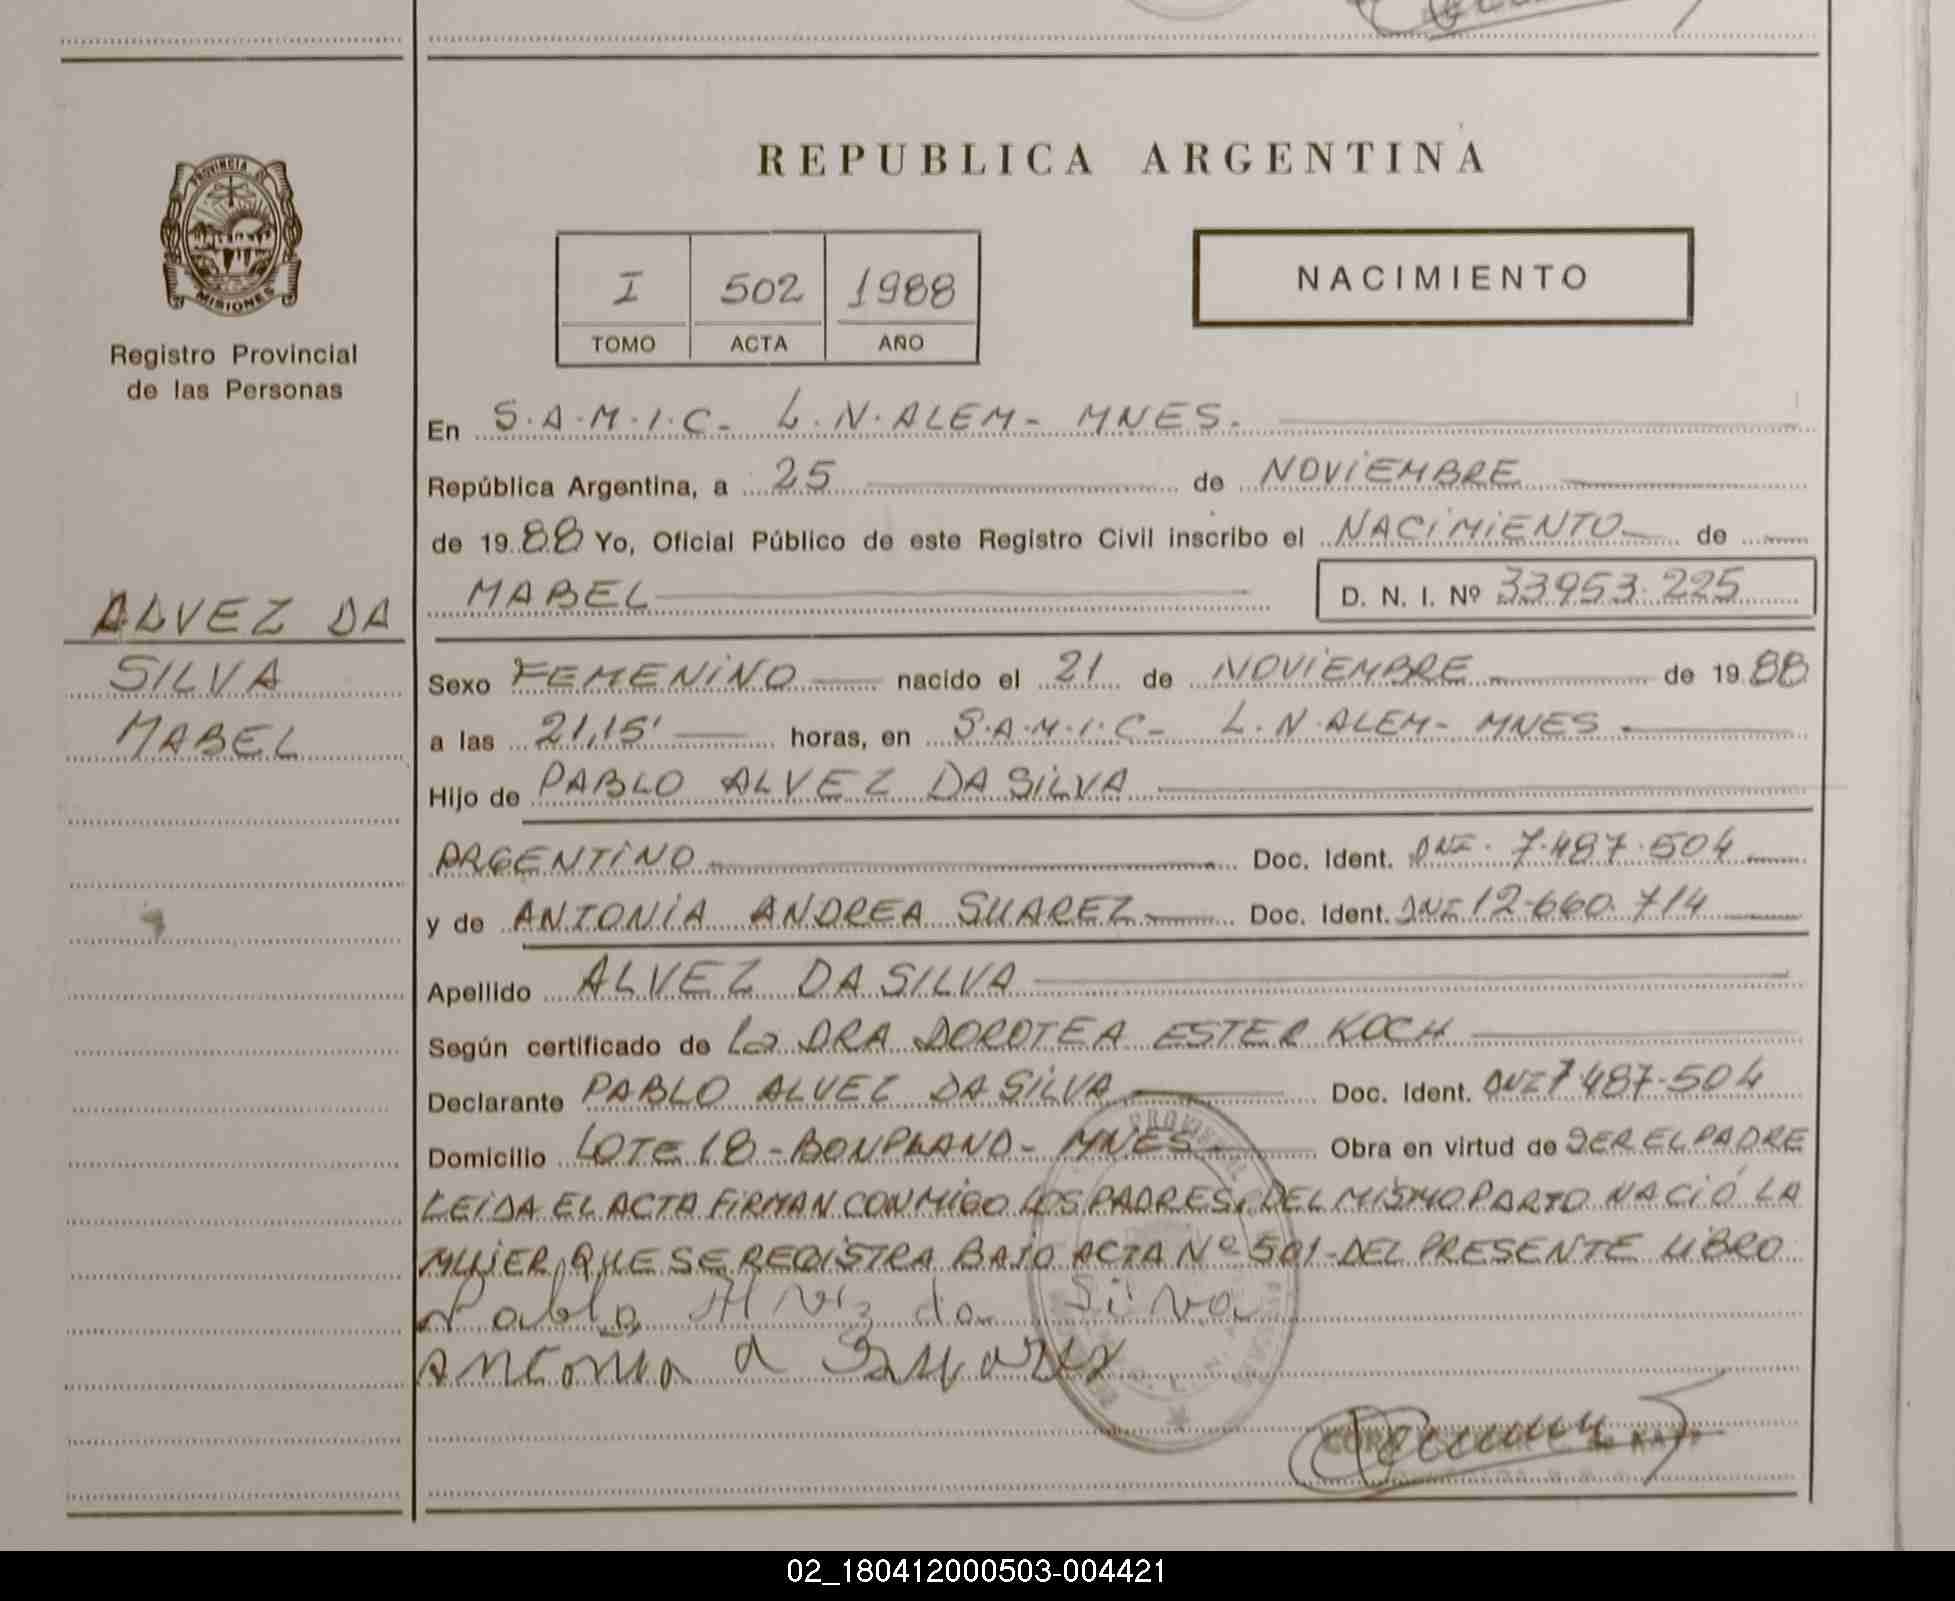 REPUBLICA ARGENTINA
PROVINCIA DE
MISIONES
Registro Provincial
de las Personas
I 502 1988
TOMO ACTA AÑO
NACIMIENTO
En S.A.M.I.C- L.N.ALEM- MNES.
República Argentina, a 25 de NOVIEMBRE
de 1988 Yo, Oficial Público de este Registro Civil inscribo el NACIMIENTO de
MABEL D. N. I. Nº 33953.225
ALVEZ DA
SILVA
MABEL
Sexo FEMENINO nacido el 21 de NOVIEMBRE de 1988
a las 21,15' horas, en S.A.M.I.C- L.N.ALEM- MNES
Hijo de PABLO ALVEZ DA SILVA
ARGENTINO Doc. Ident. DNI. 7.487.504
y de ANTONIA ANDREA SUAREZ Doc. Ident. DNI 12.660.714
Apellido ALVEZ DA SILVA
Según certificado de La DRA DOROTEA ESTER KOCH
Declarante PABLO ALVEZ DA SILVA Doc. Ident. DNI 7.487.504
Domicilio LOTE 18-BONPLAND- MNES. Obra en virtud de SER EL PADRE
LEIDA EL ACTA FIRMAN CONMIGO LOS PADRES. DEL MISMO PARTO NACIÓ LA
MUJER QUE SE REGISTRA BAJO ACTA Nº 501-DEL PRESENTE LIBRO
Pablo Alvez da Silva
Antonia a Suarez
02_180412000503-004421